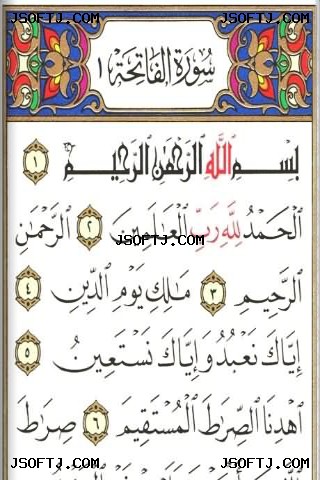 JSOFTJ.COM JSOFTJ.COM
سُورَةُ الفَاتِحَةِ ١
بِسْمِ ٱللَّهِ ٱلرَّحْمَٰنِ ٱلرَّحِيمِ ١
ٱلْحَمْدُ لِلَّهِ رَبِّ ٱلْعَٰلَمِينَ ٢ ٱلرَّحْمَٰنِ
JSOFTJ.COM
ٱلرَّحِيمِ ٣ مَٰلِكِ يَوْمِ ٱلدِّينِ ٤
إِيَّاكَ نَعْبُدُ وَإِيَّاكَ نَسْتَعِينُ ٥
ٱهْدِنَا ٱلصِّرَٰطَ ٱلْمُسْتَقِيمَ ٦ صِرَٰطَ
JSOFTJ.COM JSOFTJ.COM